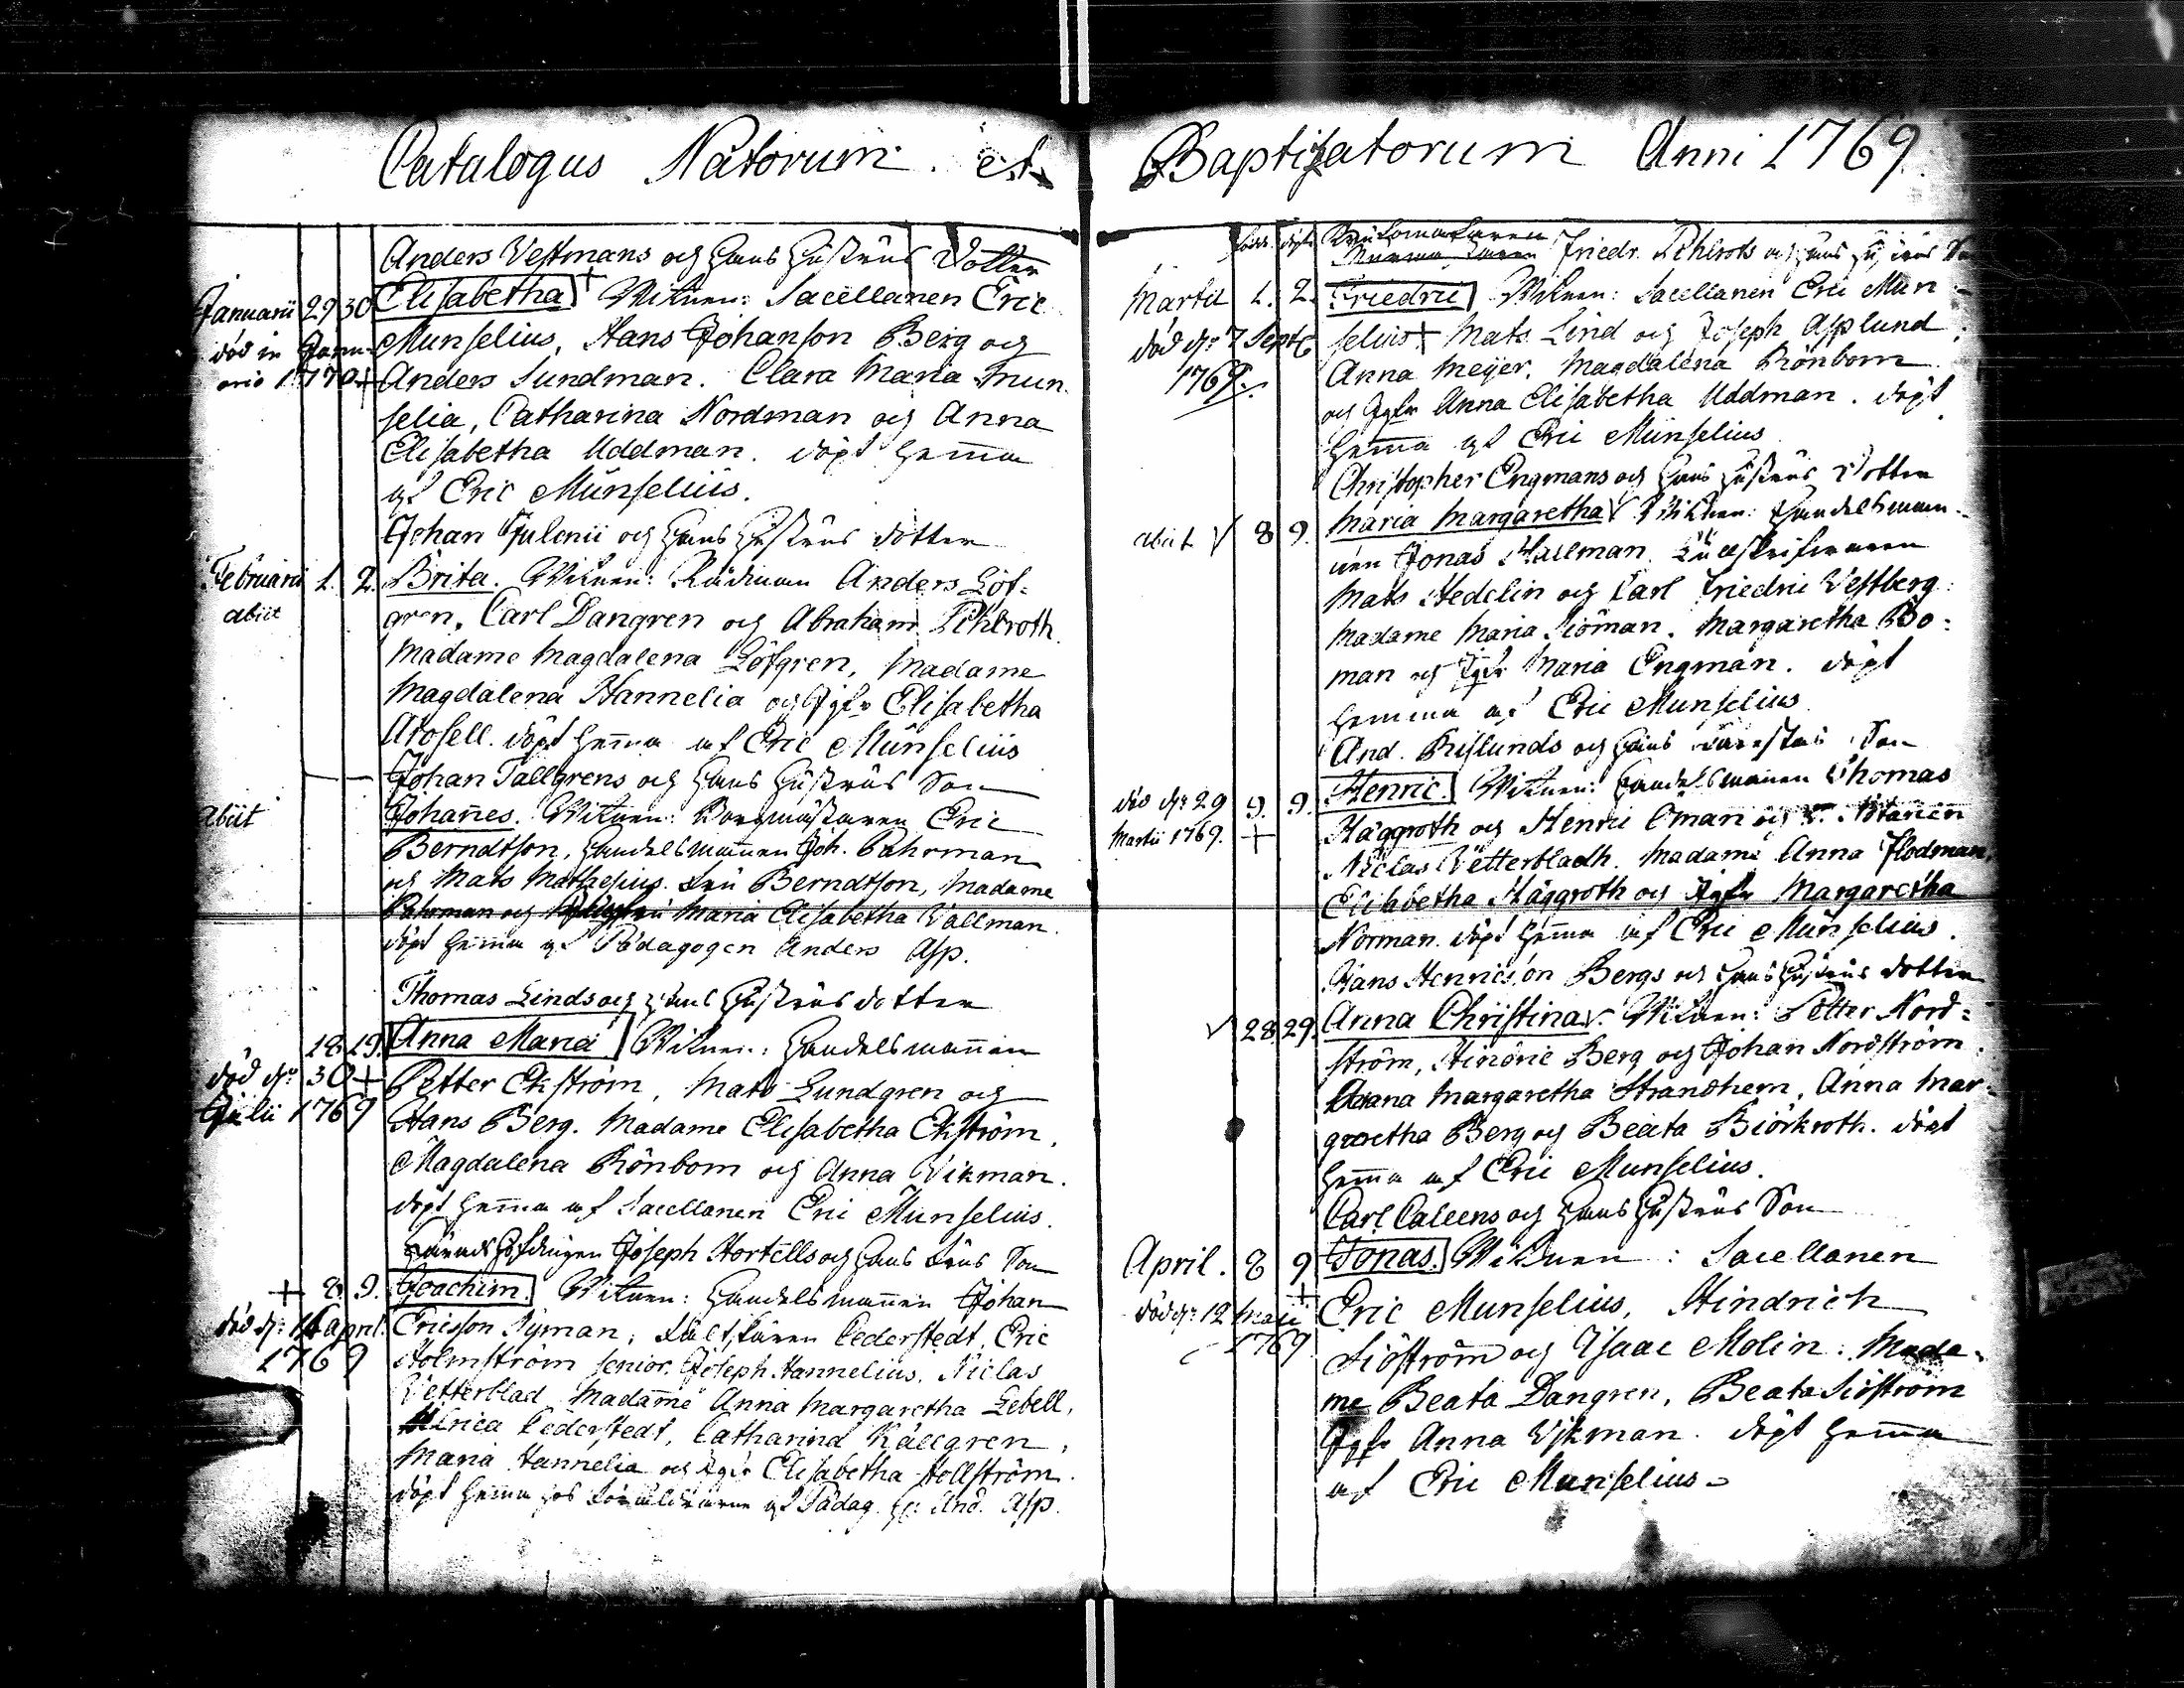 Catalogus Natorum. et
Anders Vestmans och hans hustrus Dotter
Januarii 29 30 Elisabetha Witnen: Sacellanen Eric
död in Janu- Munselius, Hans Johanson Berg och
ario 1770 + Anders Sundman. Clara Maria Mun
selia, Catharina Nordman och Anna
Elisabetha Uddman. döpt hemma
af Eric Munselius.
Johan Julenii och hans hustrus dotter
Februarii 1. 2. Brita. Witnen: Rådman Anders Löf-
abiit gren, Carl Dangren och Abraham Pihlroth.
Madame Magdalena Löfgren, Madame
Magdalena Hannelia och Jgfr Elisabetha
Arosell. döpt hemma af Eric Munselius
Johan Tallgrens och hans hustrus Son
abiit Johannes. Witnen: Borgmästaren Eric
Berndtson, handelsmannen Joh. Fahrman
och Mats Mathesius. Fru Berndtson, Madame
Fahrman och Maria Elisabetha Vallman.
döpt hemma af Pädagogen Anders Asp.
Thomas Linds och hans hustrus dotter
18 19. Anna Maria Witnen: handelsmannen
död d: 30 + Petter Ekström, Mats Lundgren och
Julii 1769 Hans Berg. Madame Elisabetha Ekström,
Magdalena Rönbom och Anna Vikman.
döpt hemma af Sacellanen Eric Munselius.
häradshöfdingen Joseph Hortells och hans frus Son
+ 8. 9. Joachim. Witnen: handelsmannen Johan
död d: 14 april. Ericsson Nyman, Cederstedt, Eric
1769 Holmström senior, Joseph Hannelius, Niclas
Vetterblad, Madame Anna Margaretha Lebell,
Ulrica Cederstedt, Catharina Källgren,
Maria Hannelia och Jgfr Elisabetha Hollström.
döpt hemma hos föräldrarne af Pädag. H: And. Asp.
Baptizatorum Anni 1769.
född. döpt.
Friedr. Pihlrots och hans hustrus Son
Martii 1. 2. Friedric Witnen: Sacellanen Eric Mun-
död d: 7 Sept selius + Mats Lind och Joseph Asplund.
1769. Anna Meijer, Magdalena Rönbom
och Jgfr Anna Elisabetha Uddman. döpt
hemma af Eric Munselius
Christopher Engmans och hans hustrus Dotter
abiit √ 8 9. Maria Margaretha √ Witnen: handelsman-
nen Jonas Hallman,
Mats Hedelin och Carl Friedric Vestberg:
Madame Maria Siöman. Margaretha Bo=
man och Jgfr Maria Engman. döpt
hemma af Eric Munselius
And. och hans Son
död d: 29 9. 9. Henric. Witnen: handelsmannen Thomas
Martii 1769. + Häggroth och Henric Öman och Notarien
Niclas Vetterbladh. Madame Anna Flodman,
Elisabetha Häggroth och Jgfr Margaretha
Norman. döpt hemma af Eric Munselius.
Hans Henricson Bergs och hans hustrus dotter
√ 28 29. Anna Christina √. Witnen: Petter Nord=
ström, Hindric Berg och Johan Nordström.
Anna Margaretha Strandhem, Anna Mar-
garetha Berg och Beata Biörkroth. döpt
hemma af Eric Munselius.
Carl Caleens och hans hustrus Son
April. 8 9 Jonas. Witnen: Sacellanen
död d: 12 Maji + Eric Munselius, Hindrich
1769 Siöström och Isaac Molin. Mada-
me Beata Dangren, Beata Siöström
Jgfr Anna Vijkman. döpt hemma
af Eric Munselius-